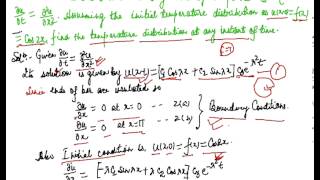 ∂u/∂t = ∂²u/∂x². Assuming the initial temperature distribution as u(x,0) = f(x)
= Cos2x find the temperature distribution at any instant of time.
Soln. Given ∂u/∂t = ∂²u/∂x²
Its solution is given by u(x,t) = [C₁ Cosλx + C₂ Sinλx] C₃ e^(-λ²t) → ①
Since ends of bar are insulated so
∂u/∂x = 0 at x = 0 -- 2(a)
∂u/∂x = 0 at x = π -- 2(b)
} Boundary Conditions.
Also Initial condition is u(x,0) = f(x) = Cos2x
∂u/∂x = [-λC₁ sinλx + λC₂ Cosλx] C₃ e^(-λ²t)